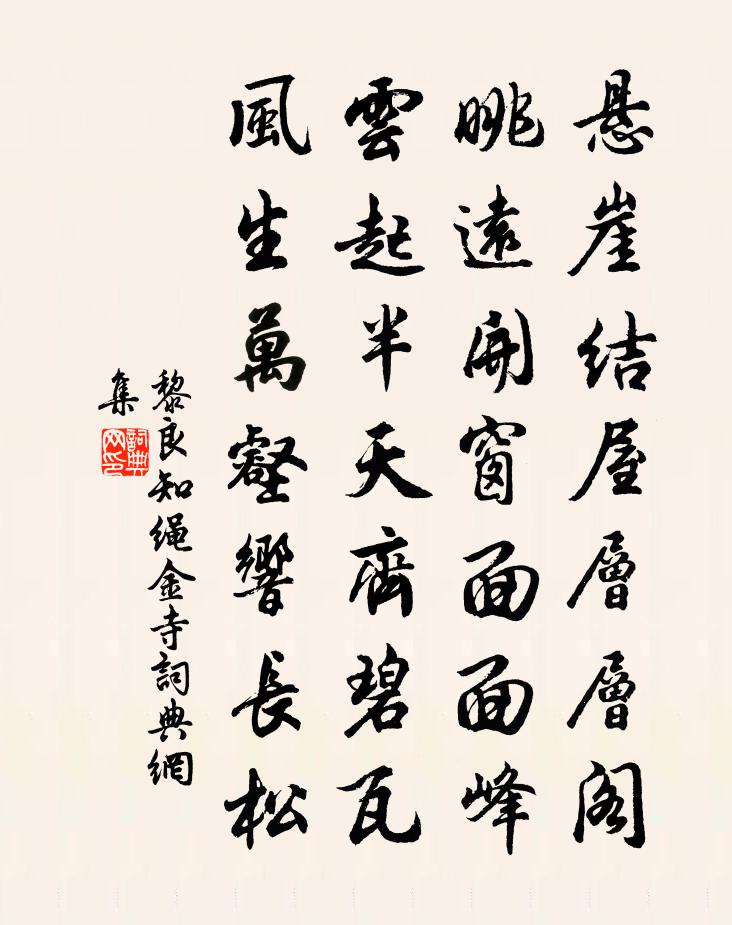 悬崖结屋層層阁
眺遠開窗面面峰
雲起半天齊碧瓦
風生萬壑響長松
黎良知绳金寺詞典網
集
詞典
网印